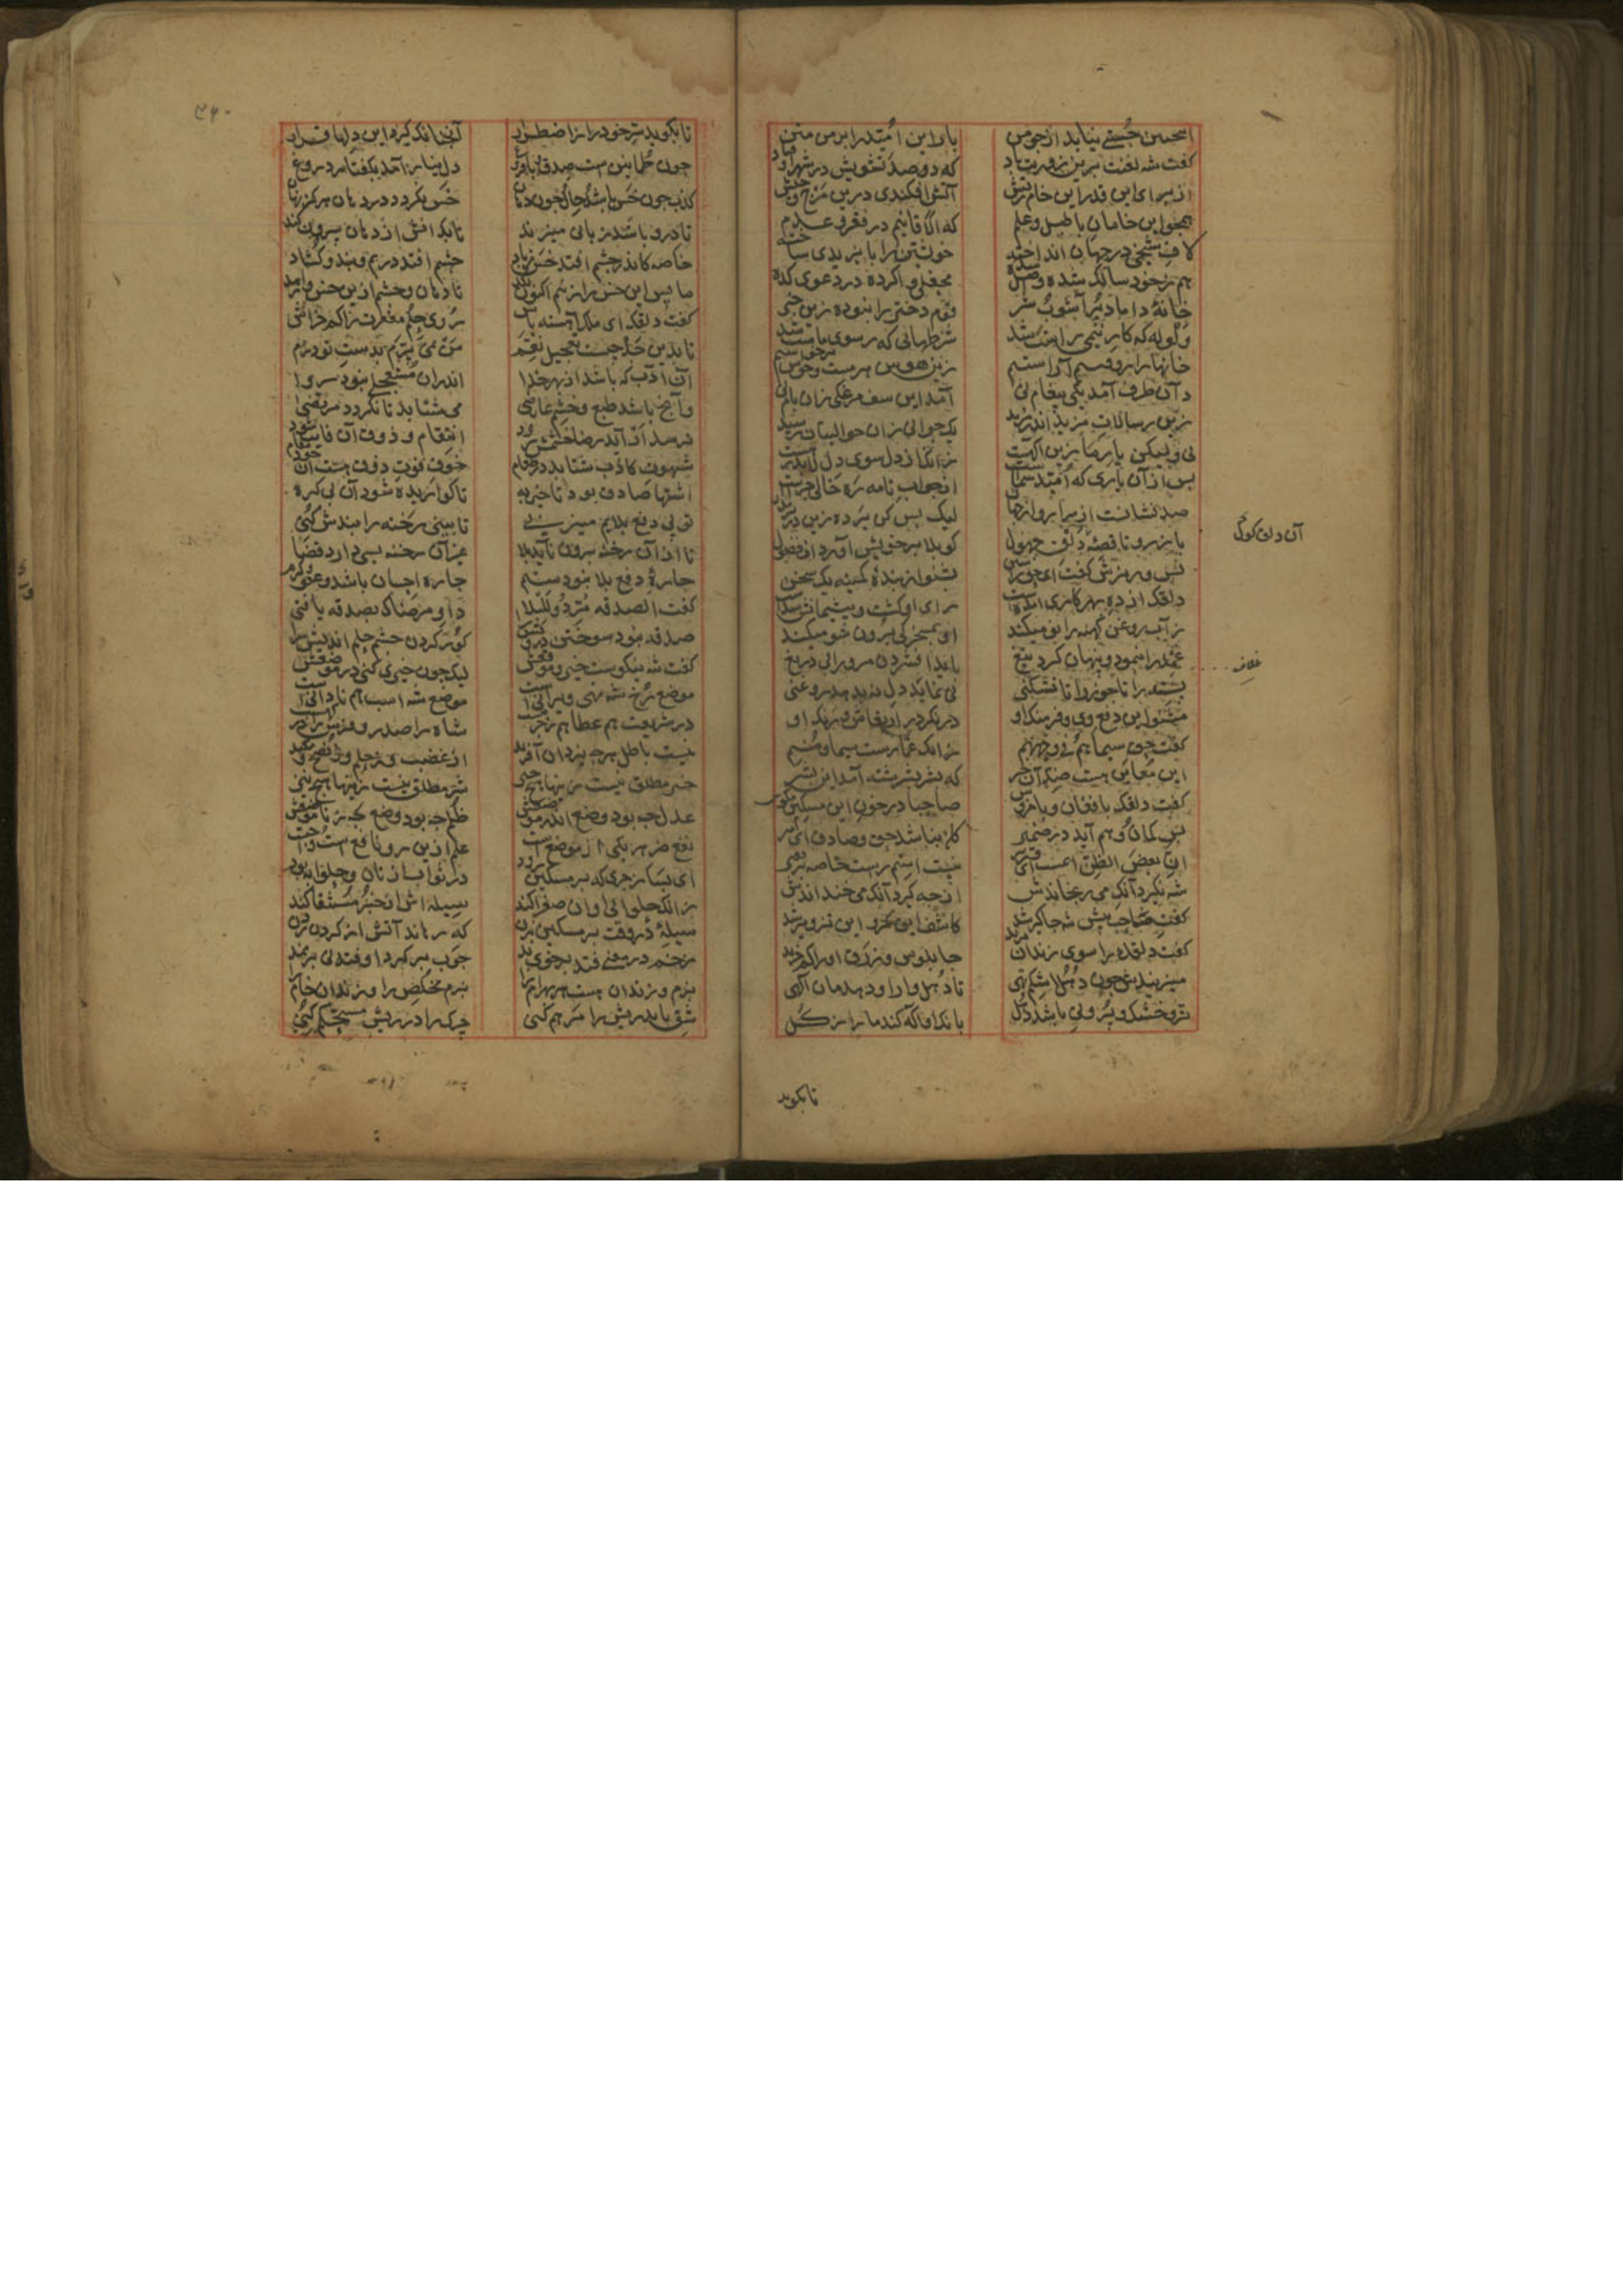 اینچنین چستی نیاید از چو من باری این امید را بر من متن
گفت شه لعنت برین زودیت باد که دو صد تشویش در شهر اوفتاد
از برای این قدر این خام ریش آتش افکندی درین مرج و حشیش
همچو این خامان با طبل و علم که الاقانیم در فقر و عدم
لاف شیخی در جهان انداخته خویشتن را بایزیدی ساخته
هم ز خود سالک شده واصل شده محفلی واکرده در دعوی کده
خانهٔ داماد پر آشوب شر قوم دختر را نبوده زین خبر
ولوله که کار نیمی راست شد شرطهائی که ز سوی ماست شد
خانها را روفتیم آراستیم زین هوس سرمست و خوش برخاستیم
زان طرف آمد یکی پیغام نی آمد این سو مرغکی زان بام نی
زین رسالات مزید اندر مزید یک جوابی زان حوالیتان رسید
نی ولیکن یار ما زین آگهست زانک از دل سوی دل لابد رهست
پس از آن یاری که امید شماست از جواب نامه ره خالی چراست
صد نشانست از سرار و از جهار لیک بس کن پرده زین در بر مدار
باز رو تا قصهٔ دلق جهول کو بلا بر خویش آورد از فضول
آن دلق گول
پس وزیرش گفت ای حق را ستن بشنو از بندهٔ کمینه یک سخن
دلقک از ده بهر کاری آمدست رای او گشت و پشیمانش شدست
ز آب و روغن کهنه را نو میکند او بمسخرگی برون شو میکند
غمد را بنمود و پنهان کرد تیغ باید افشردن مرورا بی دریغ
غلاف
پسته را تا جوز را تا نشکنی نی نماید دل نه بدهد روغنی
مشنو این دفع وی و فرهنگ او در نگر در ارتعاش و رنگ او
گفت حق سیماهم فی وجههم زانک غمازست سیما و منم
این معاین هست ضد آن خبر که بشر بسرشته آمد این بشر
گفت دلقک با فغان و با خروش صاحبا در خون این مسکین مکوش
بس گمان و وهم آید در ضمیر کان نباشد حق و صادق ای امیر
ان بعض الظن اثمست ای وزیر نیست استم راست خاصه بر فقیر
شه نگیرد آنک می رنجاندش از چه گیرد آنک می خنداندش
گفت صاحب پیش شه جاگیر شد کاشف این مکر و این تزویر شد
گفت دلقک را سوی زندان برید چاپلوس و زرق او را کم خرید
میزنیدش چون دهل اشکم تهی تا دهل وار او دهدمان آگهی
تر و خشک و پر و تی باشد دهل بانگ او آگه کند ما را ز کل
تا بگوید
۳۶۰
تا بگوید سر خود را ز اضطرار آنچنانک گیرد این دلها قرار
چون طمانینست صدق با فروغ دل نیارامد بگفتار دروغ
کذب چون خس باشد دل چون دهان خس نگردد در دهان هرگز نهان
تا درو باشد زبانی میزند تا بدانش از دهان بیرون کند
خاصه کاندر چشم افتد خس ز باد چشم افتد در نم و بند و گشاد
ما پس این خس را زنیم اکنون لگد تا دهان و چشم ازین خس وا رهد
گفت دلقک ای ملک آهسته باش روی حلم و مغفرت را کم خراش
تا بدین حد چیست تعجیل نقم من نمی پرم بدست تو درم
آن ادب که باشد از بهر خدا اندر آن مستعجلی نبود روا
وانچ باشد طبع و خشم عارضی می شتابد تا نگردد مرتضی
ترسد ار آید رضا خشمش رود انتقام و ذوق آن فایت شود
شهوت کاذب شتابد در طعام خوف فوت ذوق هست آن خود سقام
اشتها صادق بود تاخیر به تا گواریده شود آن بی گره
تو پی دفع بلایم میزنی تا ببینی رخنه را بندش کنی
تا از آن رخنه برون ناید بلا غیر آن رخنه بسی دارد قضا
چارهٔ دفع بلا نبود ستم چاره احسان باشد و عفو و کرم
گفت الصدقه مرد للبلا داو مرضاک بصدقه یا فتی
صدقه نبود سوختن درویش را کور کردن چشم حلم اندیش را
گفت شه نیکوست خیر و موقعش لیک چون خیری کنی در موضعش
موضع رخ شه نهی ویرانیست موضع شه اسب هم نادانیست
در شریعت هم عطا هم زجر هست شاه را صدر و فرس را درگهست
عدل چه بود وضع اندر موضعش ظلم چه بود وضع در ناموقعش
نیست باطل هرچه یزدان آفرید از غضب وز حلم وز نصح و مکید
خیر مطلق نیست زینها هیچ چیز شر مطلق نیست زینها هیچ نیز
نفع و ضر هر یکی از موضعست علم ازین رو واجبست و نافعست
ای بسا زجری که بر مسکین رود در ثواب از نان و حلوا به بود
زانک حلوا بی اوان صفرا کند سیلیش از خبث مستنقا کند
سیلئ در وقت بر مسکین بزن که رهاند آنش از گردن زدن
زخم در معنی فتد بر خوی بد چوب بر گرد اوفتد نی بر نمد
بزم و زندان هست هر بهرام را بزم مخلص را و زندان خام را
شق باید ریش را مرهم کنی چرک را در ریش مستحکم کنی